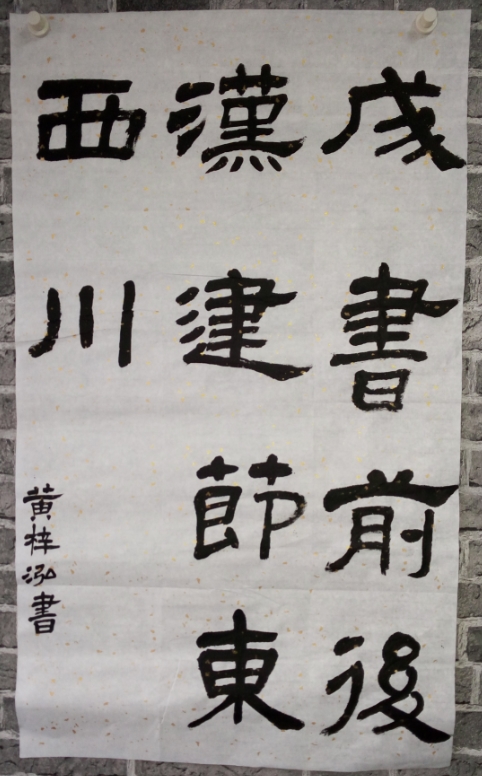 成書前後
漢建節東
西川
黄梓泓書